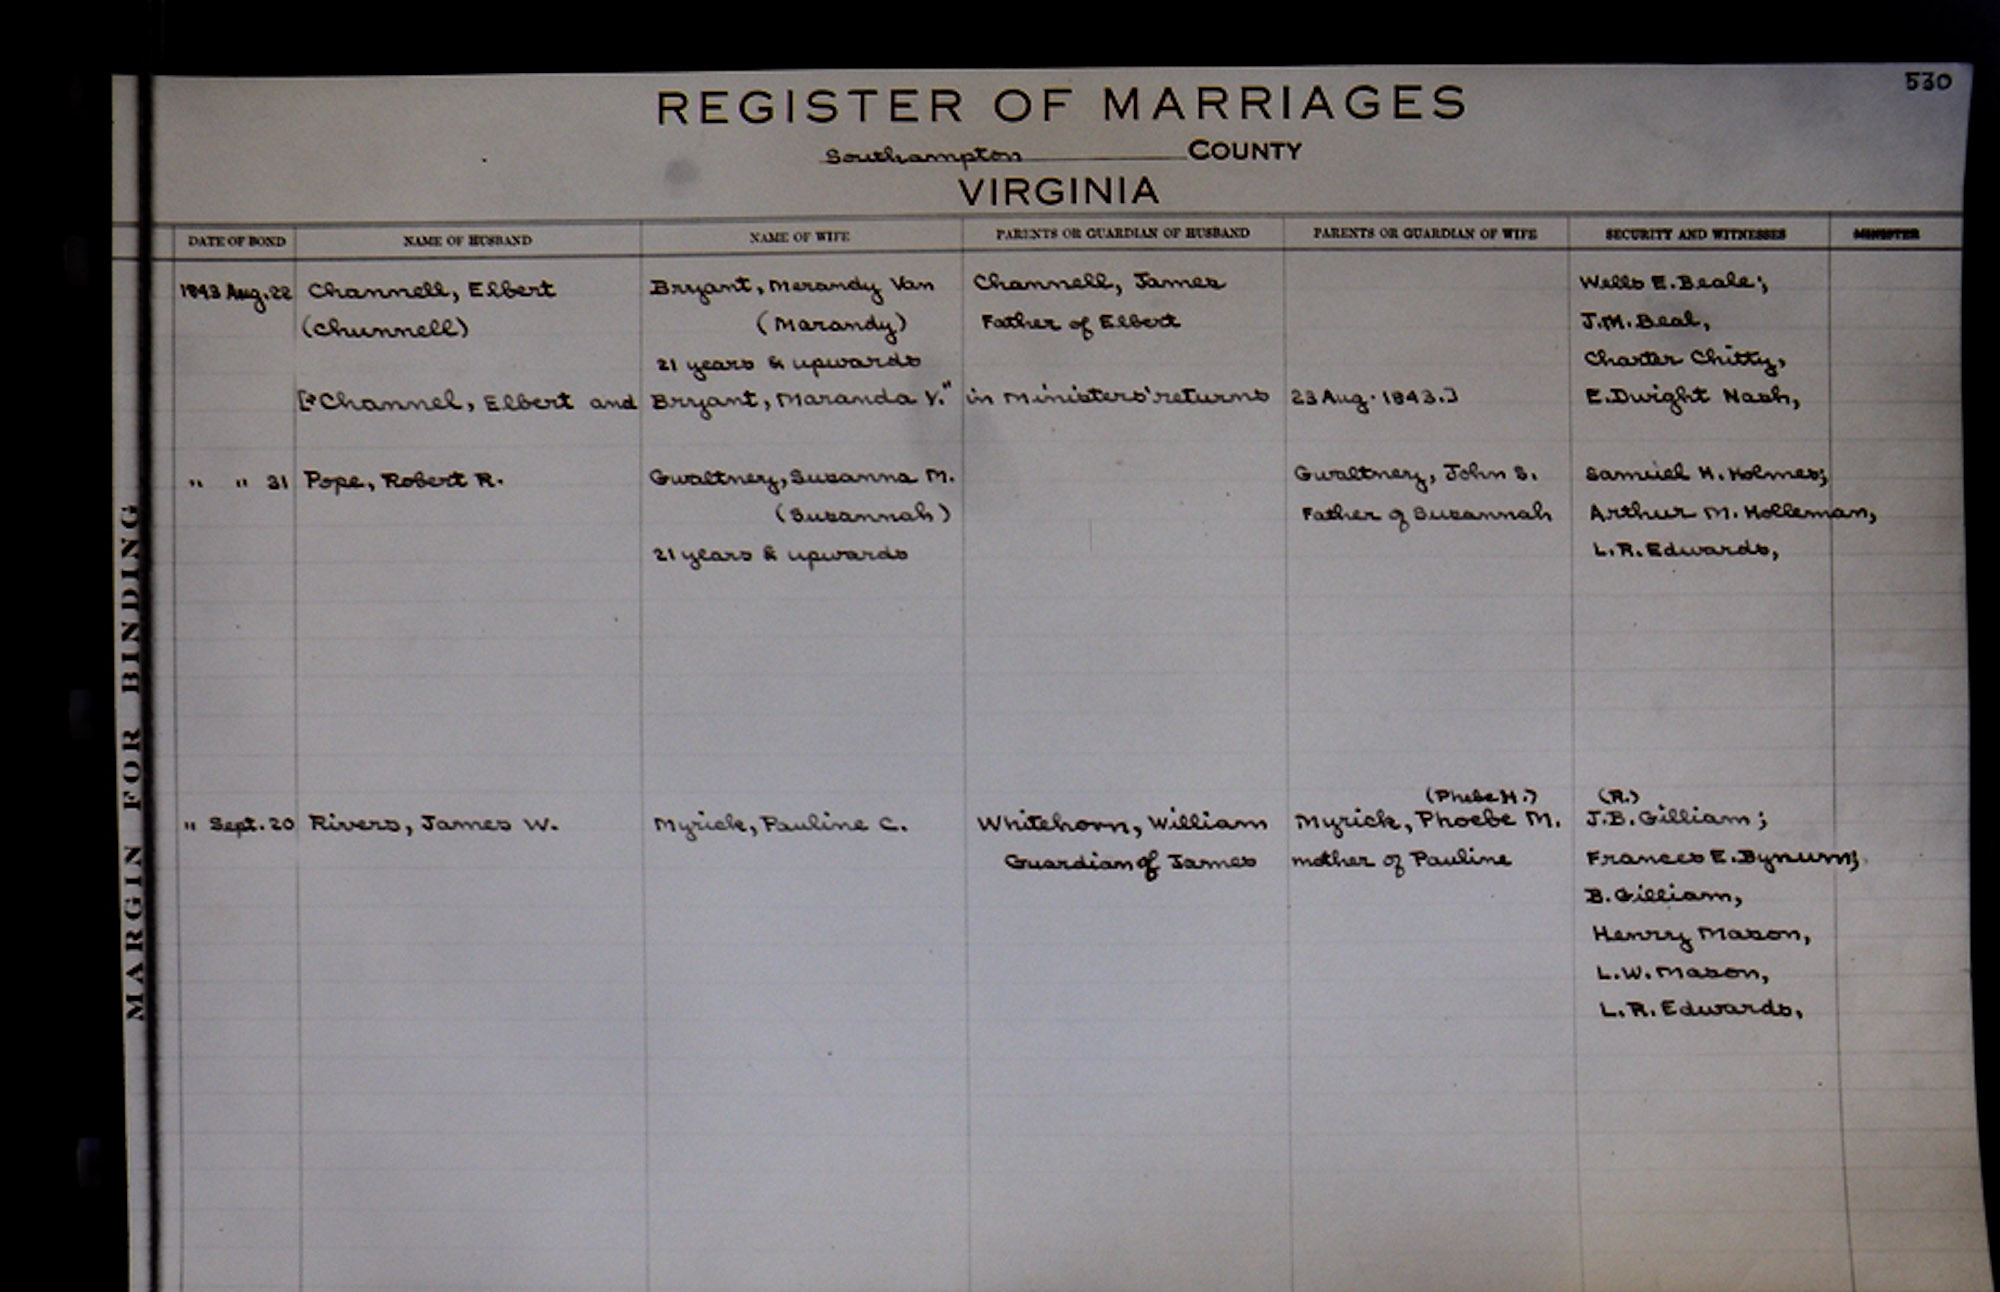 530
REGISTER OF MARRIAGES
Southampton COUNTY
VIRGINIA
DATE OF BOND NAME OF HUSBAND NAME OF WIFE PARENTS OR GUARDIAN OF HUSBAND PARENTS OR GUARDIAN OF WIFE SECURITY AND WITNESSES MINISTER
1843 Aug. 22 Channell, Elbert Bryant, Merandy Van Channell, James Wells E. Beale;
(Chunnell) (Marandy) Father of Elbert J.M. Beal,
21 years & upwards Charter Chitty,
["Channel, Elbert and Bryant, Maranda V." in Ministers' returns 23 Aug. 1843.] E. Dwight Nash,
" " 31 Pope, Robert R. Gwaltney, Susanna M. Gwaltney, John S. Samuel H. Holmes;
(Susannah) Father of Susannah Arthur M. Holleman,
21 years & upwards L.R. Edwards,
(Phebe H.) (R.)
" Sept. 20 Rivers, James W. Myrick, Pauline C. Whitehorn, William Myrick, Phoebe M. J.B. Gilliam;
Guardian of James mother of Pauline Frances E. Bynum;
B. Gilliam,
Henry Mason,
L.W. Mason,
L.R. Edwards,
MARGIN FOR BINDING